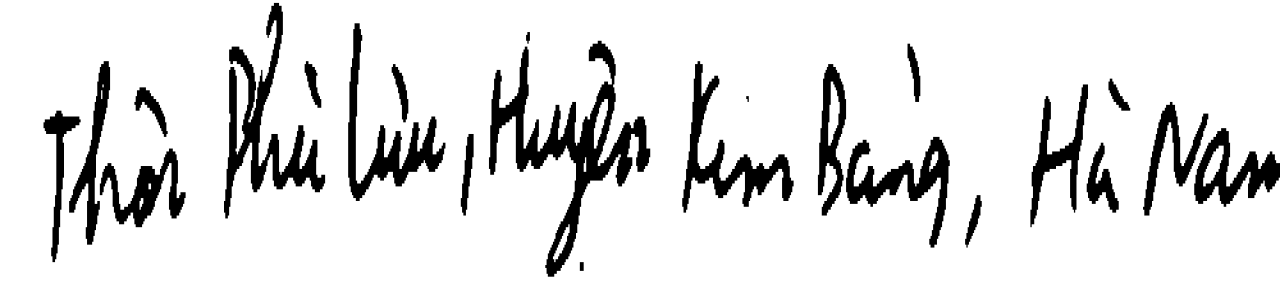 Thôn Phù Lưu, Huyện Kim Bảng, Hà Nam